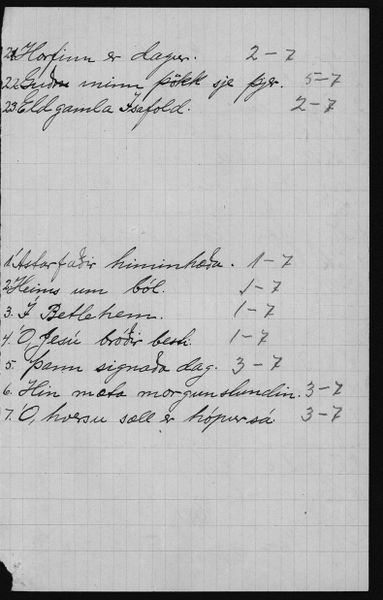 21 Horfinn er dagur. 2-7
22 Guð minn þökk sje þjer. 5-7
23 Eldgamla Ísafold. 2-7
1 Ástarfaðir himinhæða. 1-7
2 Heims um ból. 1-7
3. Í Betlehem. 1-7
4. Ó, Jesú bróðir besti. 1-7
5. þann signaða dag. 3-7
6. Hin mæta morgunstundin. 3-7
7. Ó, hversu sæll er hópur sá 3-7